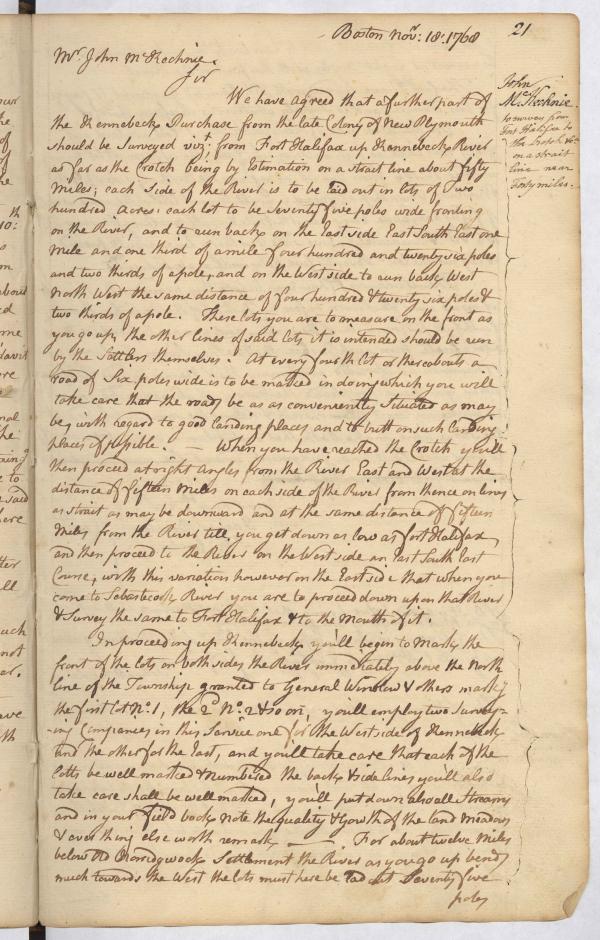 21
Boston Nov.r 18. 1768
Mr. John McKechnie.
Sir
We have agreed that a further part of
the Kennebeck Purchase from the late Colony of New Plymouth
should be Surveyed vizt. from Fort Halifax up Kennebeck River
as far as the Crotch being by Estimation on a strait line about fifty
Miles; each side of the River is to be laid out in lots of Two
hundred Acres: each lot to be Seventy five poles wide fronting
on the River, and to run back on the East side East South East one
Mile and one third of a mile four hundred and twenty six poles
and two thirds of a pole, and on the West side to run back West
North West the same distance of four hundred & twenty six poles &
two thirds of a pole. These lots you are to measure on the front as
you go up, the other lines of said lots it is intended should be run
by the Settlers themselves. At every fourth lot or thereabouts a
road of Six poles wide is to be marked in doing which you will
take care that the roads be as as conveniently situated as may
be, with regard to good landing places and to butt on such landing
places if possible. — When you have reached the Crotch you'll
then proceed at right angles from the River East and West at the
distance of fifteen Miles on each side of the River from thence on lines
as strait as may be downward and at the same distance of fifteen
Miles from the River till you get down as low as Fort Halifax,
and then proceed to the River on the West side an East South East
Course, with this variation however on the East side that when you
come to Sebastecook River you are to proceed down upon that River
& Survey the same to Fort Halifax & to the Mouth of it.
In proceeding up Kennebeck you'll begin to Mark the
front of the lots on both sides the River immediately above the North
line of the Township granted to General Winslow & others mark
the first lot No. 1, the 2d No. 2 & so on, you'll employ two Survey-
ing Companies in this Service one for the West side of Kennebeck
and the other for the East, and you'll take care that each of the
lotts be well marked & numbered the back & side lines you'll also
take care shall be well marked, you'll put down also all Streams
and in your field book note the quality & Growth of the land Meadows
& every thing else worth remark. — For about twelve Miles
below Old Norridgwock Settlement the River as you go up bends
much towards the West the lots must here be laid out Seventy five
poles
John
McKechnie
to survey from
Fort Halifax to
the Crotch &c.
on a strait
line near
Forty miles.